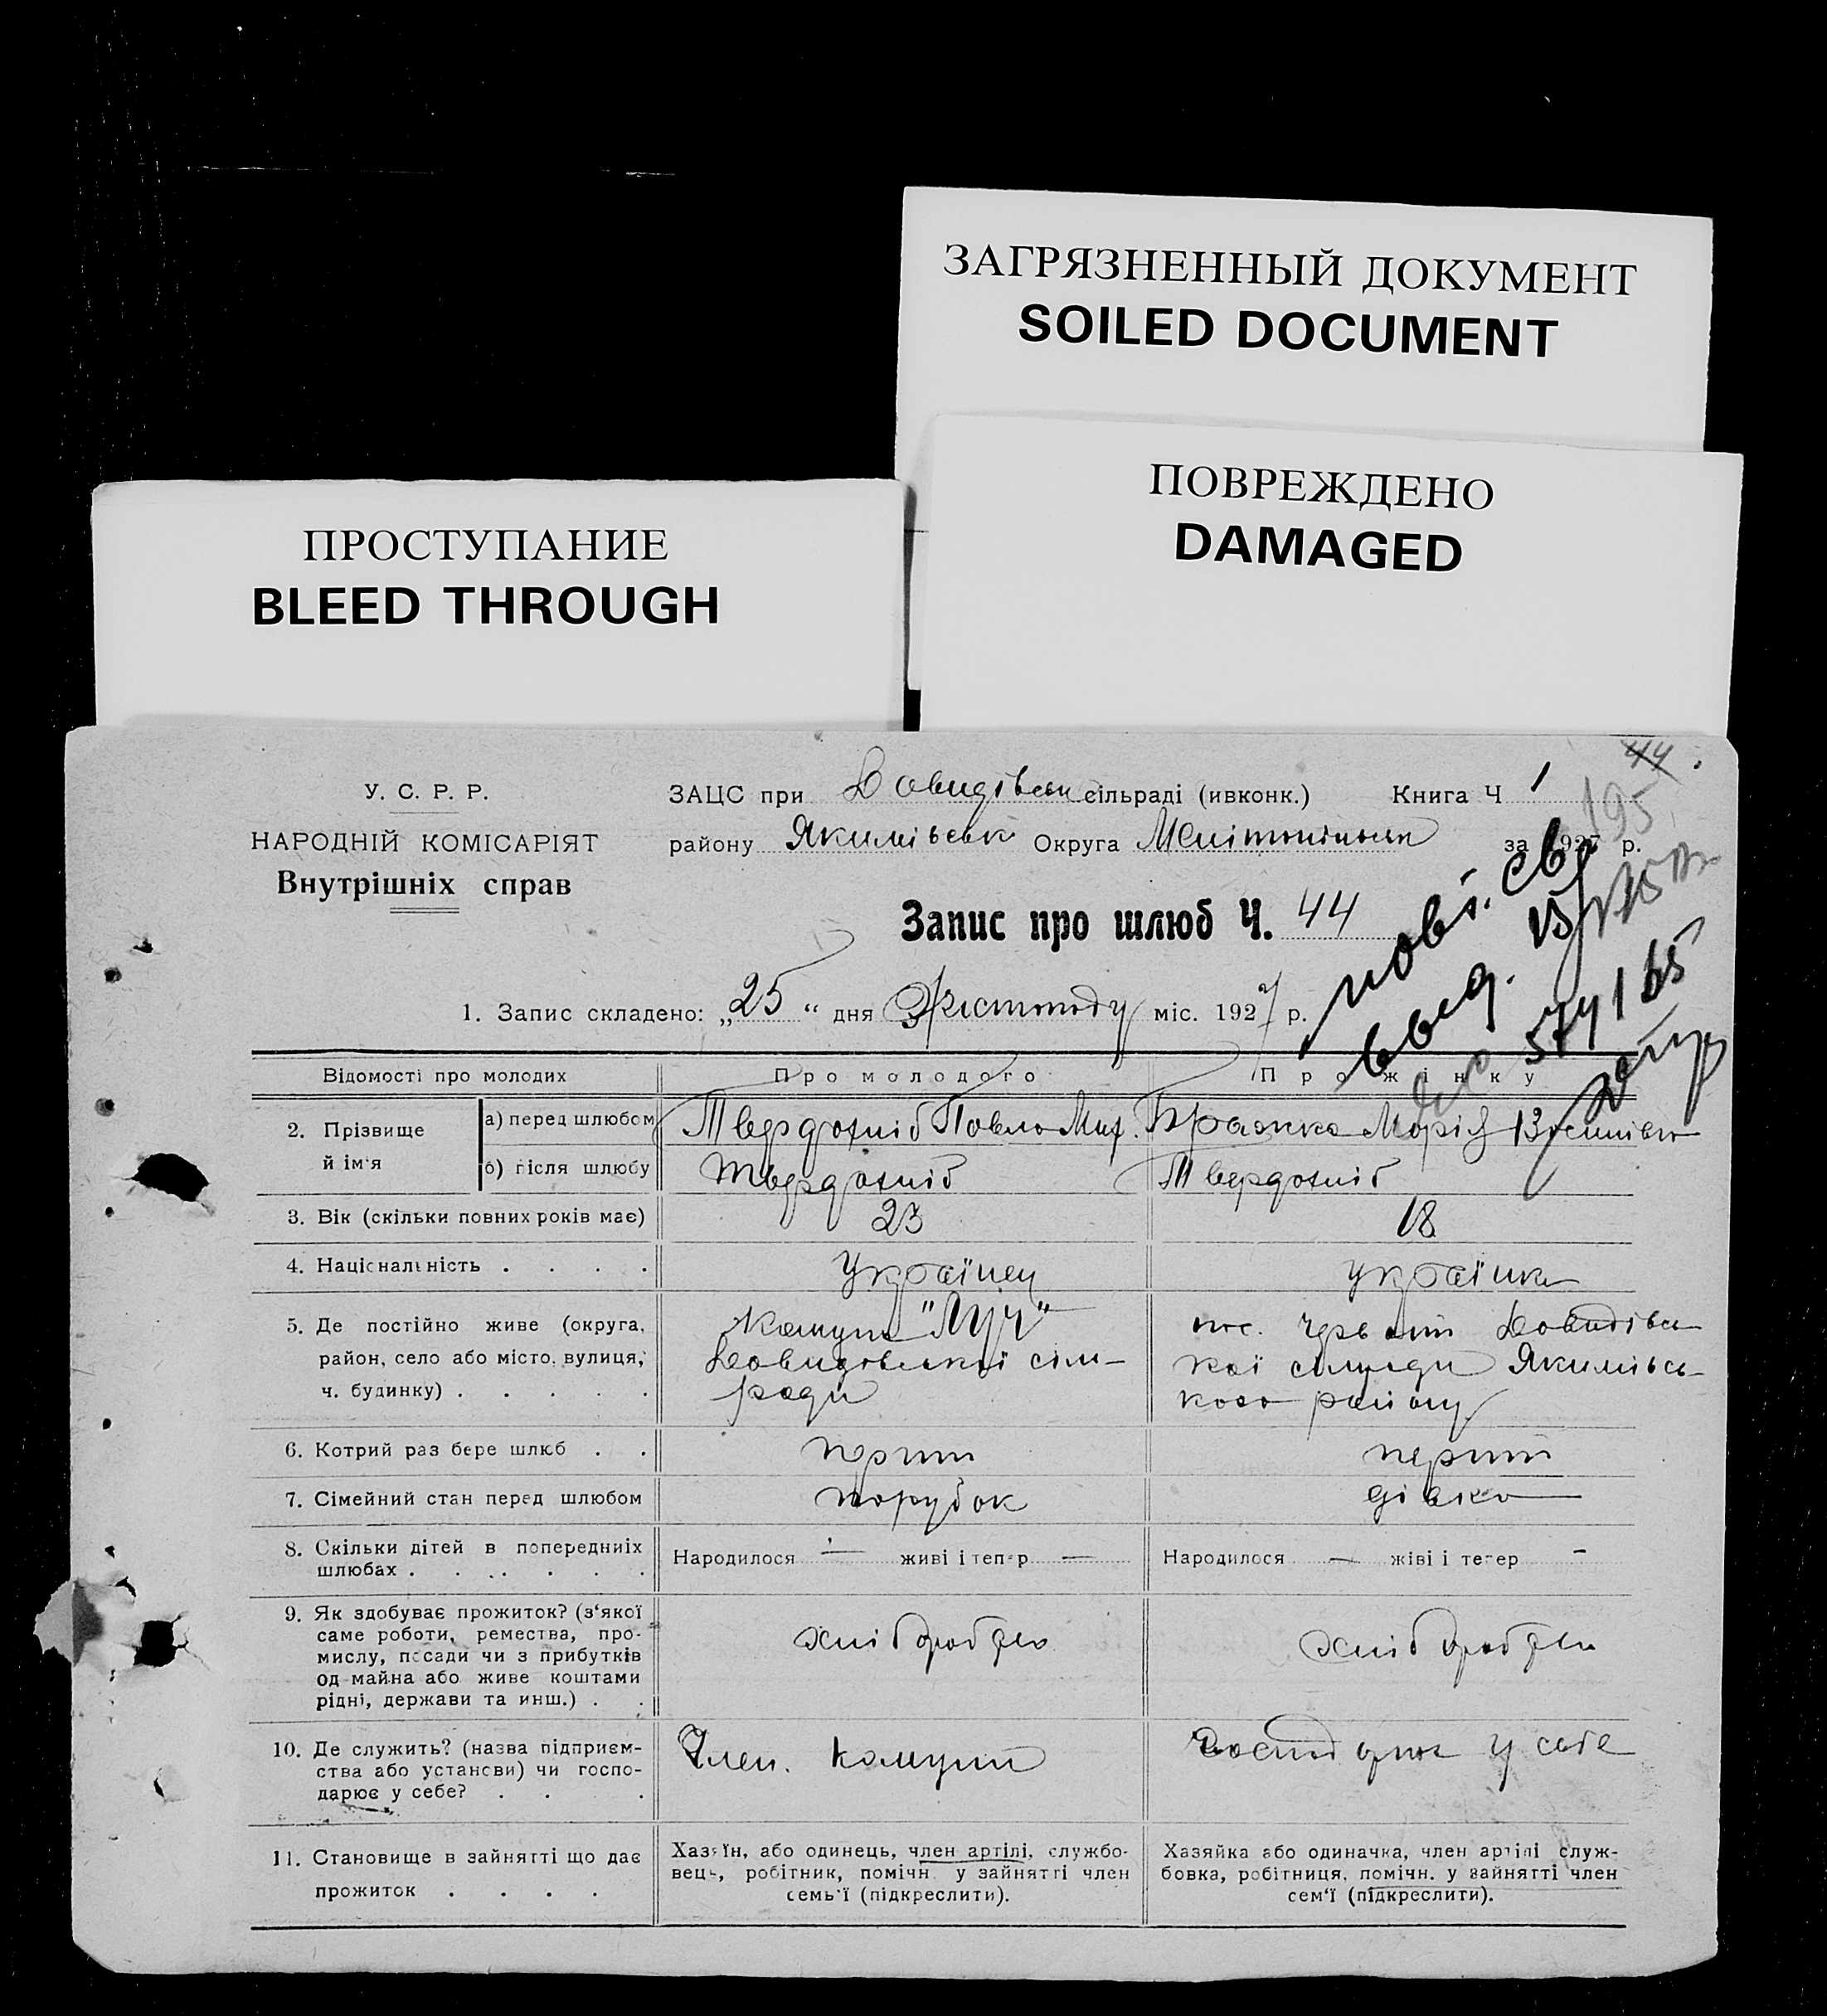 ЗАГРЯЗНЕННЫЙ ДОКУМЕНТ
SOILED DOCUMENT
ПОВРЕЖДЕНО
DAMAGED
ПРОСТУПАНИЕ
BLEED THROUGH
У. С. Р. Р.
НАРОДНІЙ КОМІСАРІЯТ
Внутрішніх справ
44
195
ЗАЦС при Давидівськ сільраді (ивконк.) Книга Ч 1
району Якимівськ Округа Мелітопільськ за 1927 р.
Запис про шлюб Ч. 44
повт. св
выд.
574165
1. Запис складено: „25“ дня Листопаду міс. 1927 р.
Відомості про молодих Про молодого Про жінку
2. Прізвище й ім'я
а) перед шлюбом Твердохліб Павло Мих. Марія
б) після шлюбу Твердохліб Твердохліб
3. Вік (скільки повних років має) 23 18
4. Національність . . . . Українец українка
5. Де постійно живе (округа, район, село або місто, вулиця, ч. будинку) . . . . .
Комуна "Луч"
Давидовської сіль-
ради
пос. Давидівсь
кої сільради Якимівсь-
кого району
6. Котрий раз бере шлюб . . перший перший
7. Сімейний стан перед шлюбом порубок дівка
8. Скільки дітей в попередниіх шлюбах . . . . . . Народилося — живі і тепер — Народилося — жіві і тепер -
9. Як здобуває прожиток? (з'якої
саме роботи, ремества, про-
мислу, посади чи з прибутків
од майна або живе коштами
рідні, держави та инш.) . .
хліборобство хліборобство
10. Де служить? (назва підприєм-
ства або установи) чи госпо-
дарює у себе? . . .
Член. Комуни у себе
11. Становище в зайнятті що дає
прожиток . . . .
Хазяїн, або одинець, член артілі, службо-
вець, робітник, помічн. у зайнятті член
семь'ї (підкреслити).
Хазяйка або одиначка, член артілі служ-
бовка, робітниця, помічн. у зайнятті член
сем'ї (підкреслити).